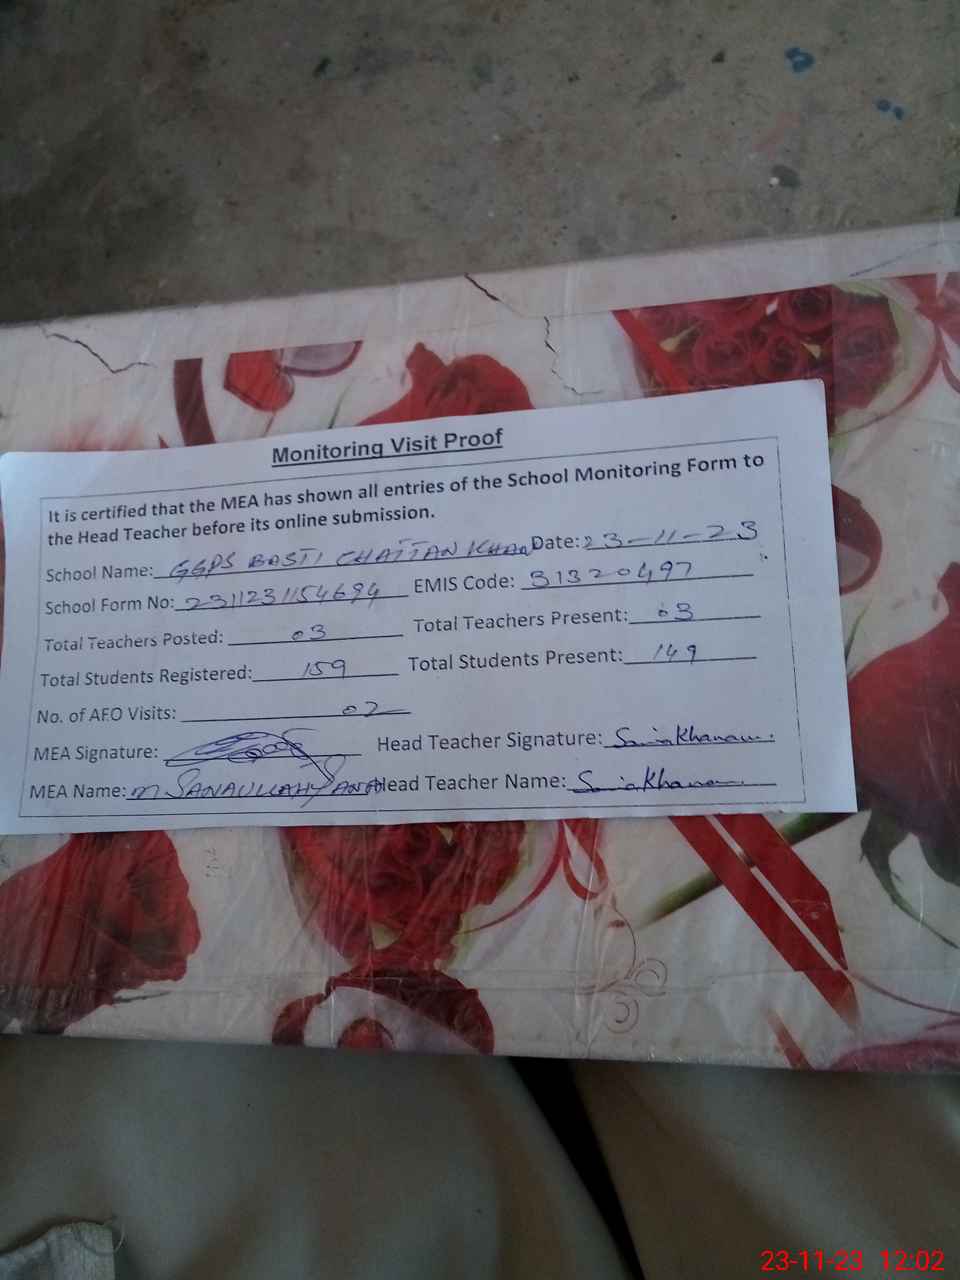 Monitoring Visit Proof
It is certified that the MEA has shown all entries of the School Monitoring Form to
the Head Teacher before its online submission.
School Name: GGPS BASTI CHATTAN KHAN Date: 23-11-23
School Form No: 2311231154694 EMIS Code: 31320497
Total Teachers Posted: 03 Total Teachers Present: 03
Total Students Registered: 159 Total Students Present: 149
No. of AEO Visits: 02
MEA Signature: Head Teacher Signature: Samia Khanam.
MEA Name: M SANAULLAH Head Teacher Name: Samia Khanam
23-11-23 12:02